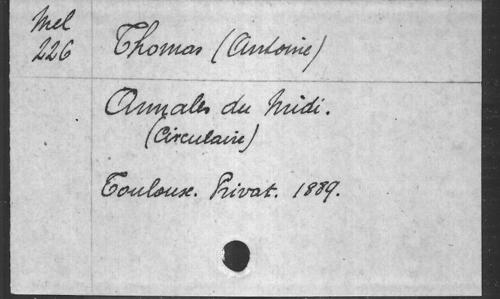 Mel
226
Thomas (Antoine)
Annales du Midi.
(Circulaire)
Toulouse. Privat. 1889.